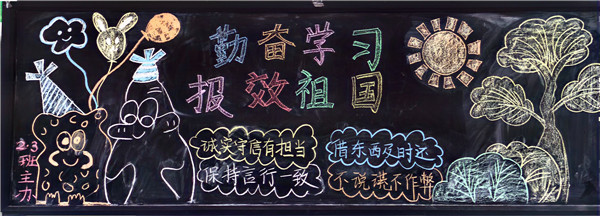 勤奋学习
报效祖国
诚实守信有担当
保持言行一致
借东西及时还
不说谎不作弊
2.3
班
主
办